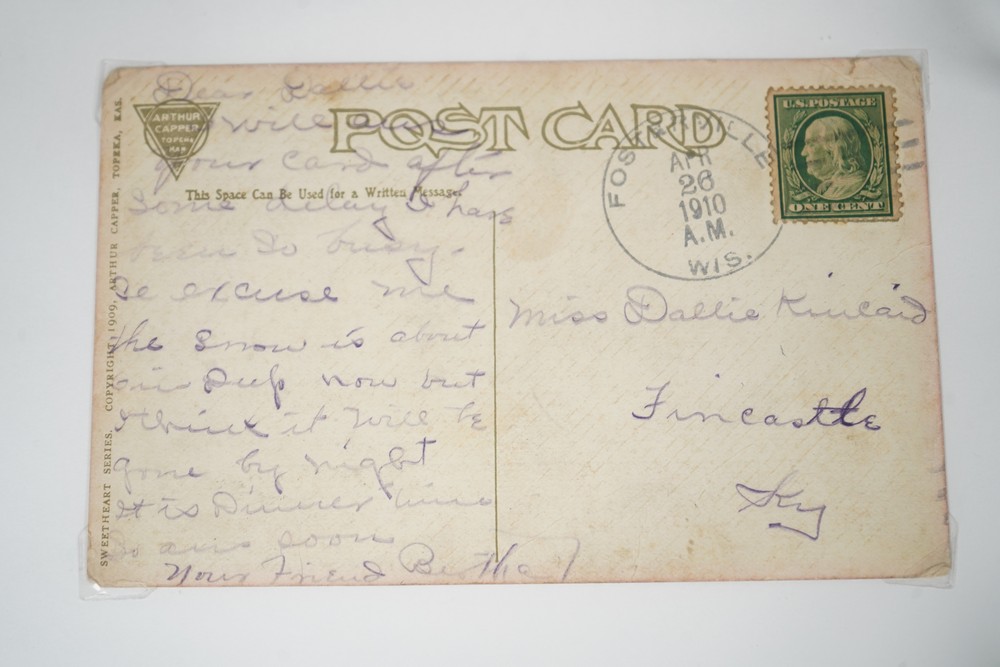 SWEETHEART SERIES. COPYRIGHT, 1909, ARTHUR CAPPER, TOPEKA, KAS.
ARTHUR
CAPPER
TOPEKA
KAN
POST CARD
This Space Can Be Used for a Written Message.
Dear Dallie
will ans
your card after
some delay I have
so busy.
excuse me
the Snow is about
Deep now but
I think it will be
gone by night
It is Dinner time
So ans soon
Your Friend Bertha
FOSTERVILLE
APR
26
1910
A.M.
WIS.
U.S. POSTAGE
ONE CENT
Miss Dallie Kincaid
Fincastle
Ky